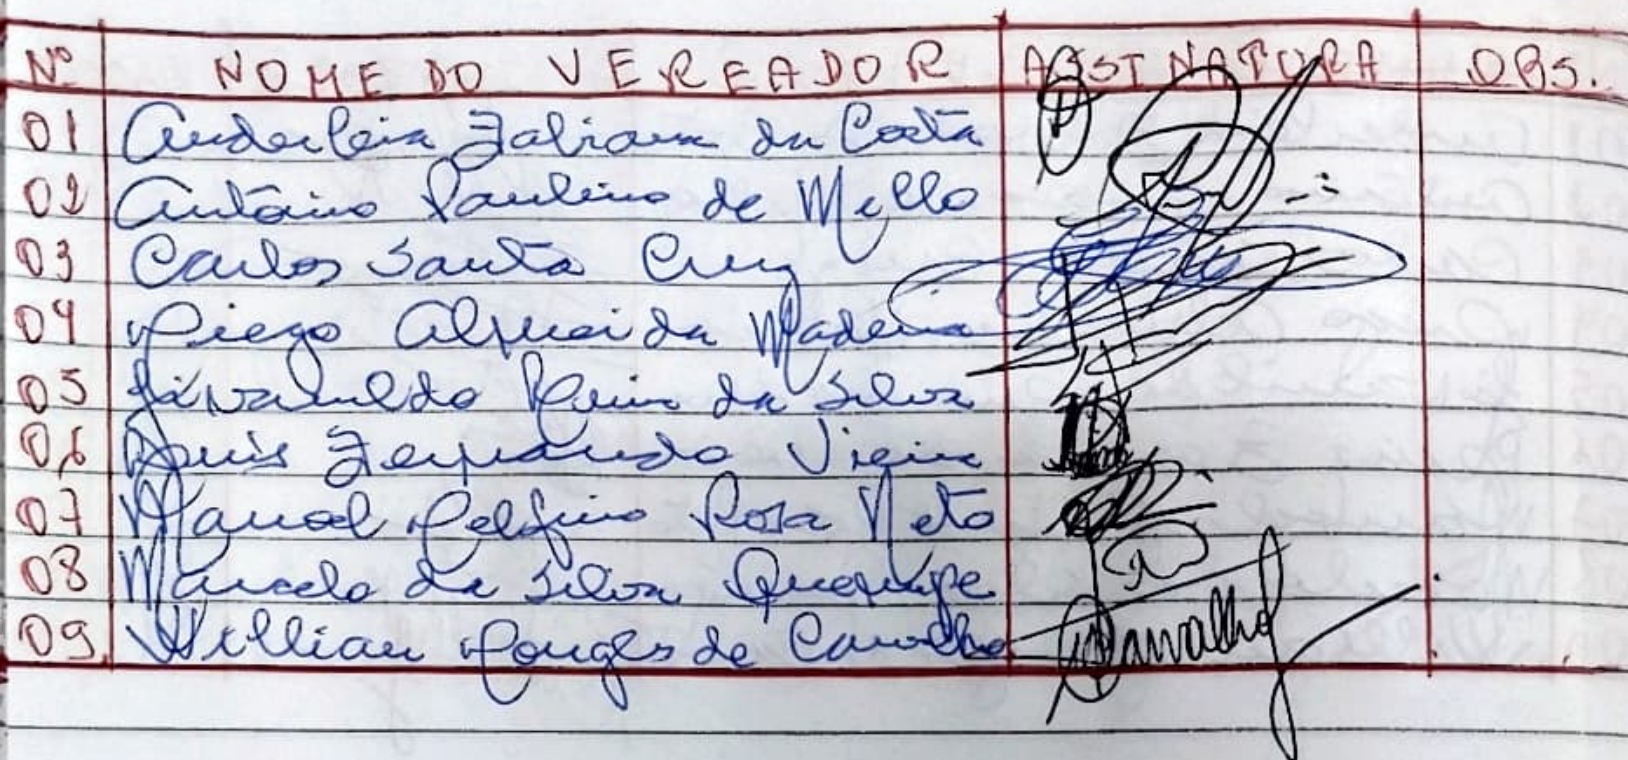 Nº NOME DO VEREADOR ASSINATURA OBS.
01 Anderleia Fabiana da Costa
02 Antônio Paulino de Mello
03 Carlos Santa Cruz
04 Diego Almeida Madeira
05 da Silva
06 Luis Fernando Vieira
07 Manoel Delfino Rosa Neto
08 Marcelo da Silva
09 Willian Borges de Carvalho Carvalho